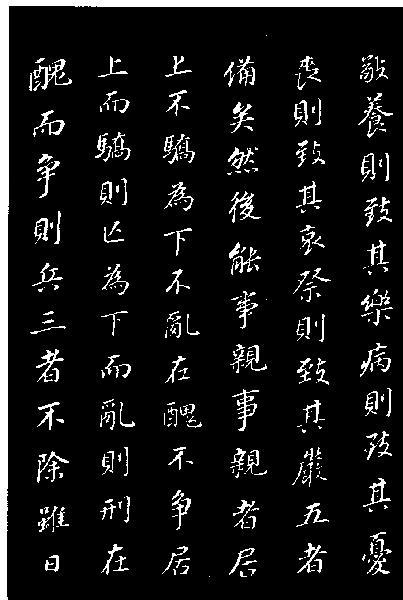 敬養則致其樂病則致其憂
喪則致其哀祭則致其嚴五者
備矣然後能事親事親者居
上不驕為下不亂在醜不争居
上而驕則亡為下而亂則刑在
醜而争則兵三者不除雖日